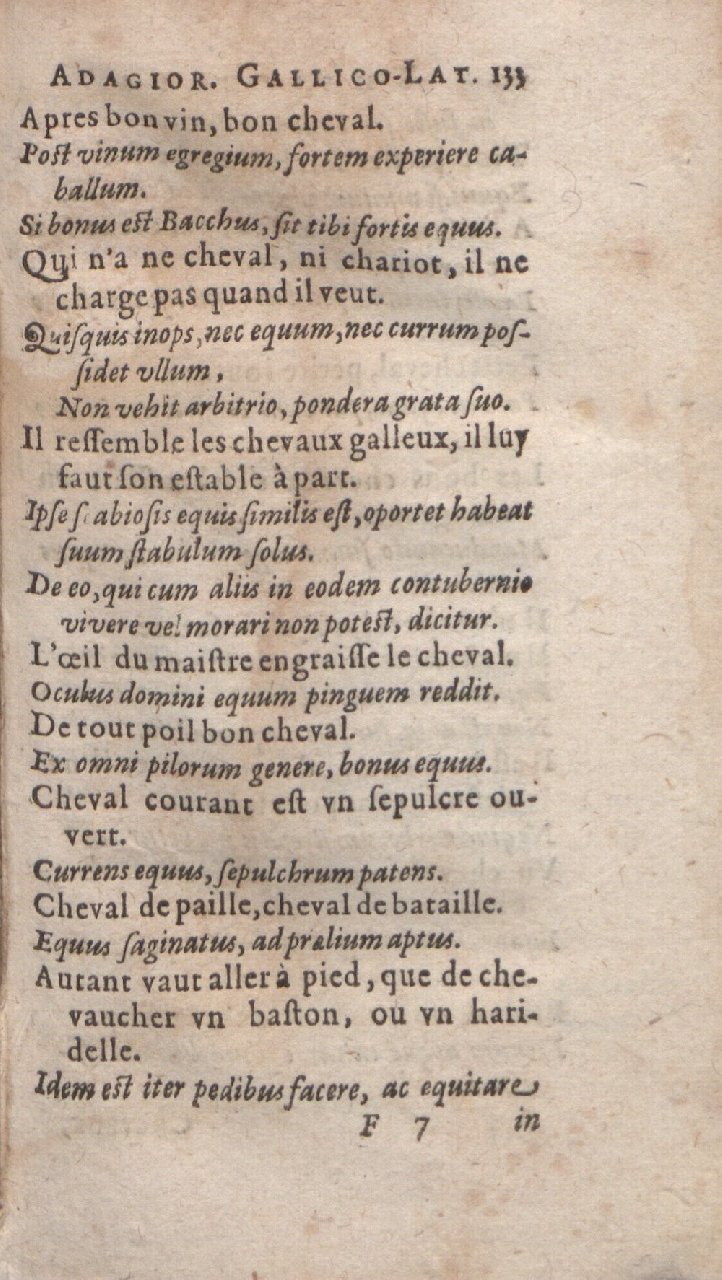 ADAGIOR. GALLICO-LAT. 133
Apres bon vin, bon cheval.
Post vinum egregium, fortem experiere ca-
ballum.
Si bonus est Bacchus, sit tibi fortis equus.
Qui n'a ne cheval, ni chariot, il ne
charge pas quand il veut.
Quiſquis inops, nec equum, nec currum poſ-
ſidet vllum,
Non vehit arbitrio, pondera grata ſuo.
Il reſſemble les chevaux galleux, il luy
faut ſon eſtable à part.
Ipſe ſcabioſis equis ſimilis eſt, oportet habeat
ſuum ſtabulum ſolus.
De eo, qui cum aliis in eodem contubernio
vivere vel morari non poteſt, dicitur.
L'œil du maiſtre engraiſſe le cheval.
Oculus domini equum pinguem reddit.
De tout poil bon cheval.
Ex omni pilorum genere, bonus equus.
Cheval courant eſt vn ſepulcre ou-
vert.
Currens equus, ſepulchrum patens.
Cheval de paille, cheval de bataille.
Equus ſaginatus, ad prælium aptus.
Autant vaut aller à pied, que de che-
vaucher vn baſton, ou vn hari-
delle.
Idem eſt iter pedibus facere, ac equitare
F 7 in